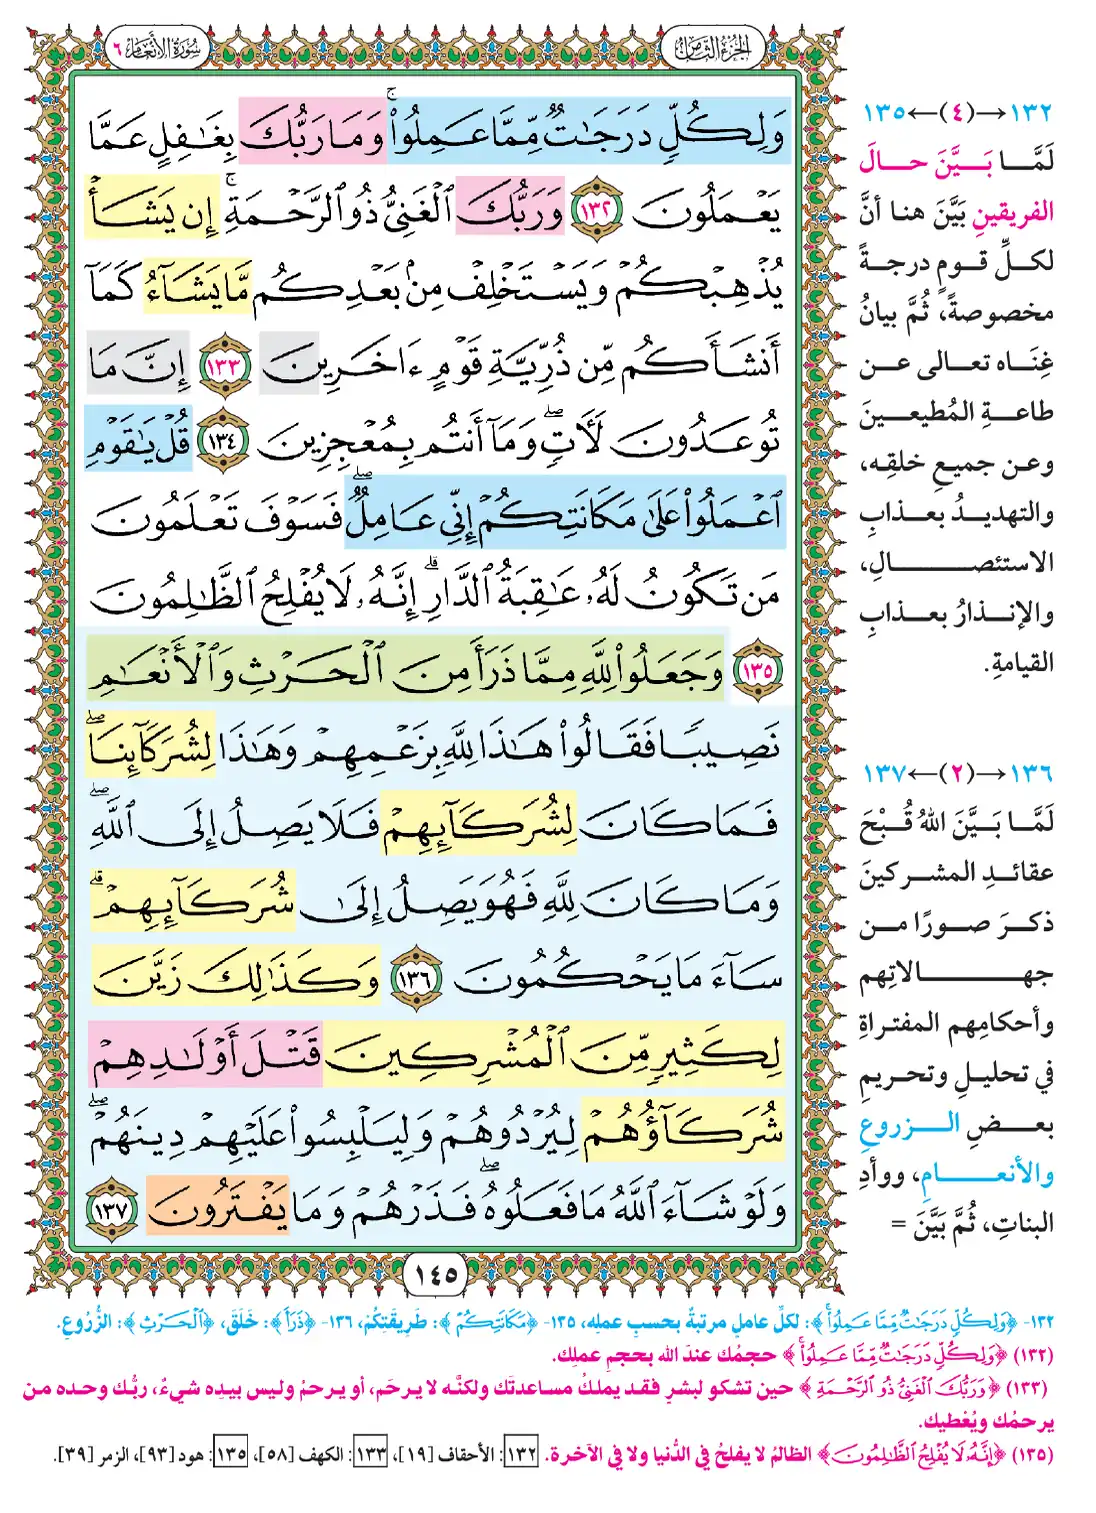 الجزء الثامن
سورة الأنعام ٦
وَلِكُلٍّ دَرَجَٰتٌ مِّمَّا عَمِلُوا۟ ۚ وَمَا رَبُّكَ بِغَٰفِلٍ عَمَّا
يَعْمَلُونَ ١٣٢ وَرَبُّكَ ٱلْغَنِىُّ ذُو ٱلرَّحْمَةِ ۚ إِن يَشَأْ
يُذْهِبْكُمْ وَيَسْتَخْلِفْ مِنۢ بَعْدِكُم مَّا يَشَآءُ كَمَآ
أَنشَأَكُم مِّن ذُرِّيَّةِ قَوْمٍ ءَاخَرِينَ ١٣٣ إِنَّ مَا
تُوعَدُونَ لَـَٔاتٍ ۖ وَمَآ أَنتُم بِمُعْجِزِينَ ١٣٤ قُلْ يَٰقَوْمِ
ٱعْمَلُوا۟ عَلَىٰ مَكَانَتِكُمْ إِنِّى عَامِلٌ ۖ فَسَوْفَ تَعْلَمُونَ
مَن تَكُونُ لَهُۥ عَٰقِبَةُ ٱلدَّارِ ۗ إِنَّهُۥ لَا يُفْلِحُ ٱلظَّٰلِمُونَ
١٣٥ وَجَعَلُوا۟ لِلَّهِ مِمَّا ذَرَأَ مِنَ ٱلْحَرْثِ وَٱلْأَنْعَٰمِ
نَصِيبًا فَقَالُوا۟ هَٰذَا لِلَّهِ بِزَعْمِهِمْ وَهَٰذَا لِشُرَكَآئِنَا ۖ
فَمَا كَانَ لِشُرَكَآئِهِمْ فَلَا يَصِلُ إِلَى ٱللَّهِ ۖ
وَمَا كَانَ لِلَّهِ فَهُوَ يَصِلُ إِلَىٰ شُرَكَآئِهِمْ ۗ
سَآءَ مَا يَحْكُمُونَ ١٣٦ وَكَذَٰلِكَ زَيَّنَ
لِكَثِيرٍ مِّنَ ٱلْمُشْرِكِينَ قَتْلَ أَوْلَٰدِهِمْ
شُرَكَآؤُهُمْ لِيُرْدُوهُمْ وَلِيَلْبِسُوا۟ عَلَيْهِمْ دِينَهُمْ ۖ
وَلَوْ شَآءَ ٱللَّهُ مَا فَعَلُوهُ ۖ فَذَرْهُمْ وَمَا يَفْتَرُونَ ١٣٧
١٤٥
١٣٢→(٤)←١٣٥
لَمَّا بَيَّنَ حالَ
الفريقينِ بَيَّنَ هنا أنَّ
لكلِّ قومٍ درجةً
مخصوصةً، ثُمَّ بيانُ
غِنَاه تعالى عن
طاعةِ المُطيعينَ
وعن جميعِ خلقِه،
والتهديدُ بعذابِ
الاستئصالِ،
والإنذارُ بعذابِ
القيامةِ.
١٣٦→(٢)←١٣٧
لَمَّا بَيَّنَ اللهُ قُبْحَ
عقائدِ المشركينَ
ذكرَ صورًا من
جهالاتِهم
وأحكامِهم المفتراةِ
في تحليلِ وتحريمِ
بعضِ الزروعِ
والأنعامِ، ووأدِ
البناتِ، ثُمَّ بَيَّنَ =
١٣٢- ﴿وَلِكُلٍّ دَرَجَٰتٌ مِّمَّا عَمِلُوا۟ۚ﴾: لكلِّ عاملٍ مرتبةٌ بحسبِ عملِه، ١٣٥- ﴿مَكَانَتِكُمْ﴾: طَرِيقَتِكُمْ، ١٣٦- ﴿ذَرَأَ﴾: خَلَقَ، ﴿ٱلْحَرْثِ﴾: الزُّرُوعِ.
(١٣٢) ﴿وَلِكُلٍّ دَرَجَٰتٌ مِّمَّا عَمِلُوا۟ۚ﴾ حجمُك عندَ الله بحجمِ عملِك.
(١٣٣) ﴿وَرَبُّكَ ٱلْغَنِىُّ ذُو ٱلرَّحْمَةِ﴾ حين تشكو لبشرٍ فقد يملكُ مساعدتَك ولكنَّه لا يرحَم، أو يرحمُ وليس بيدِه شيءٌ، ربُّك وحده من
يرحمُك ويُعْطيك.
(١٣٥) ﴿إِنَّهُۥ لَا يُفْلِحُ ٱلظَّٰلِمُونَ﴾ الظالمُ لا يفلحُ في الدُّنيا ولا في الآخرة. ١٣٢: الأحقاف [١٩]، ١٣٣: الكهف [٥٨]، ١٣٥: هود [٩٣]، الزمر [٣٩].